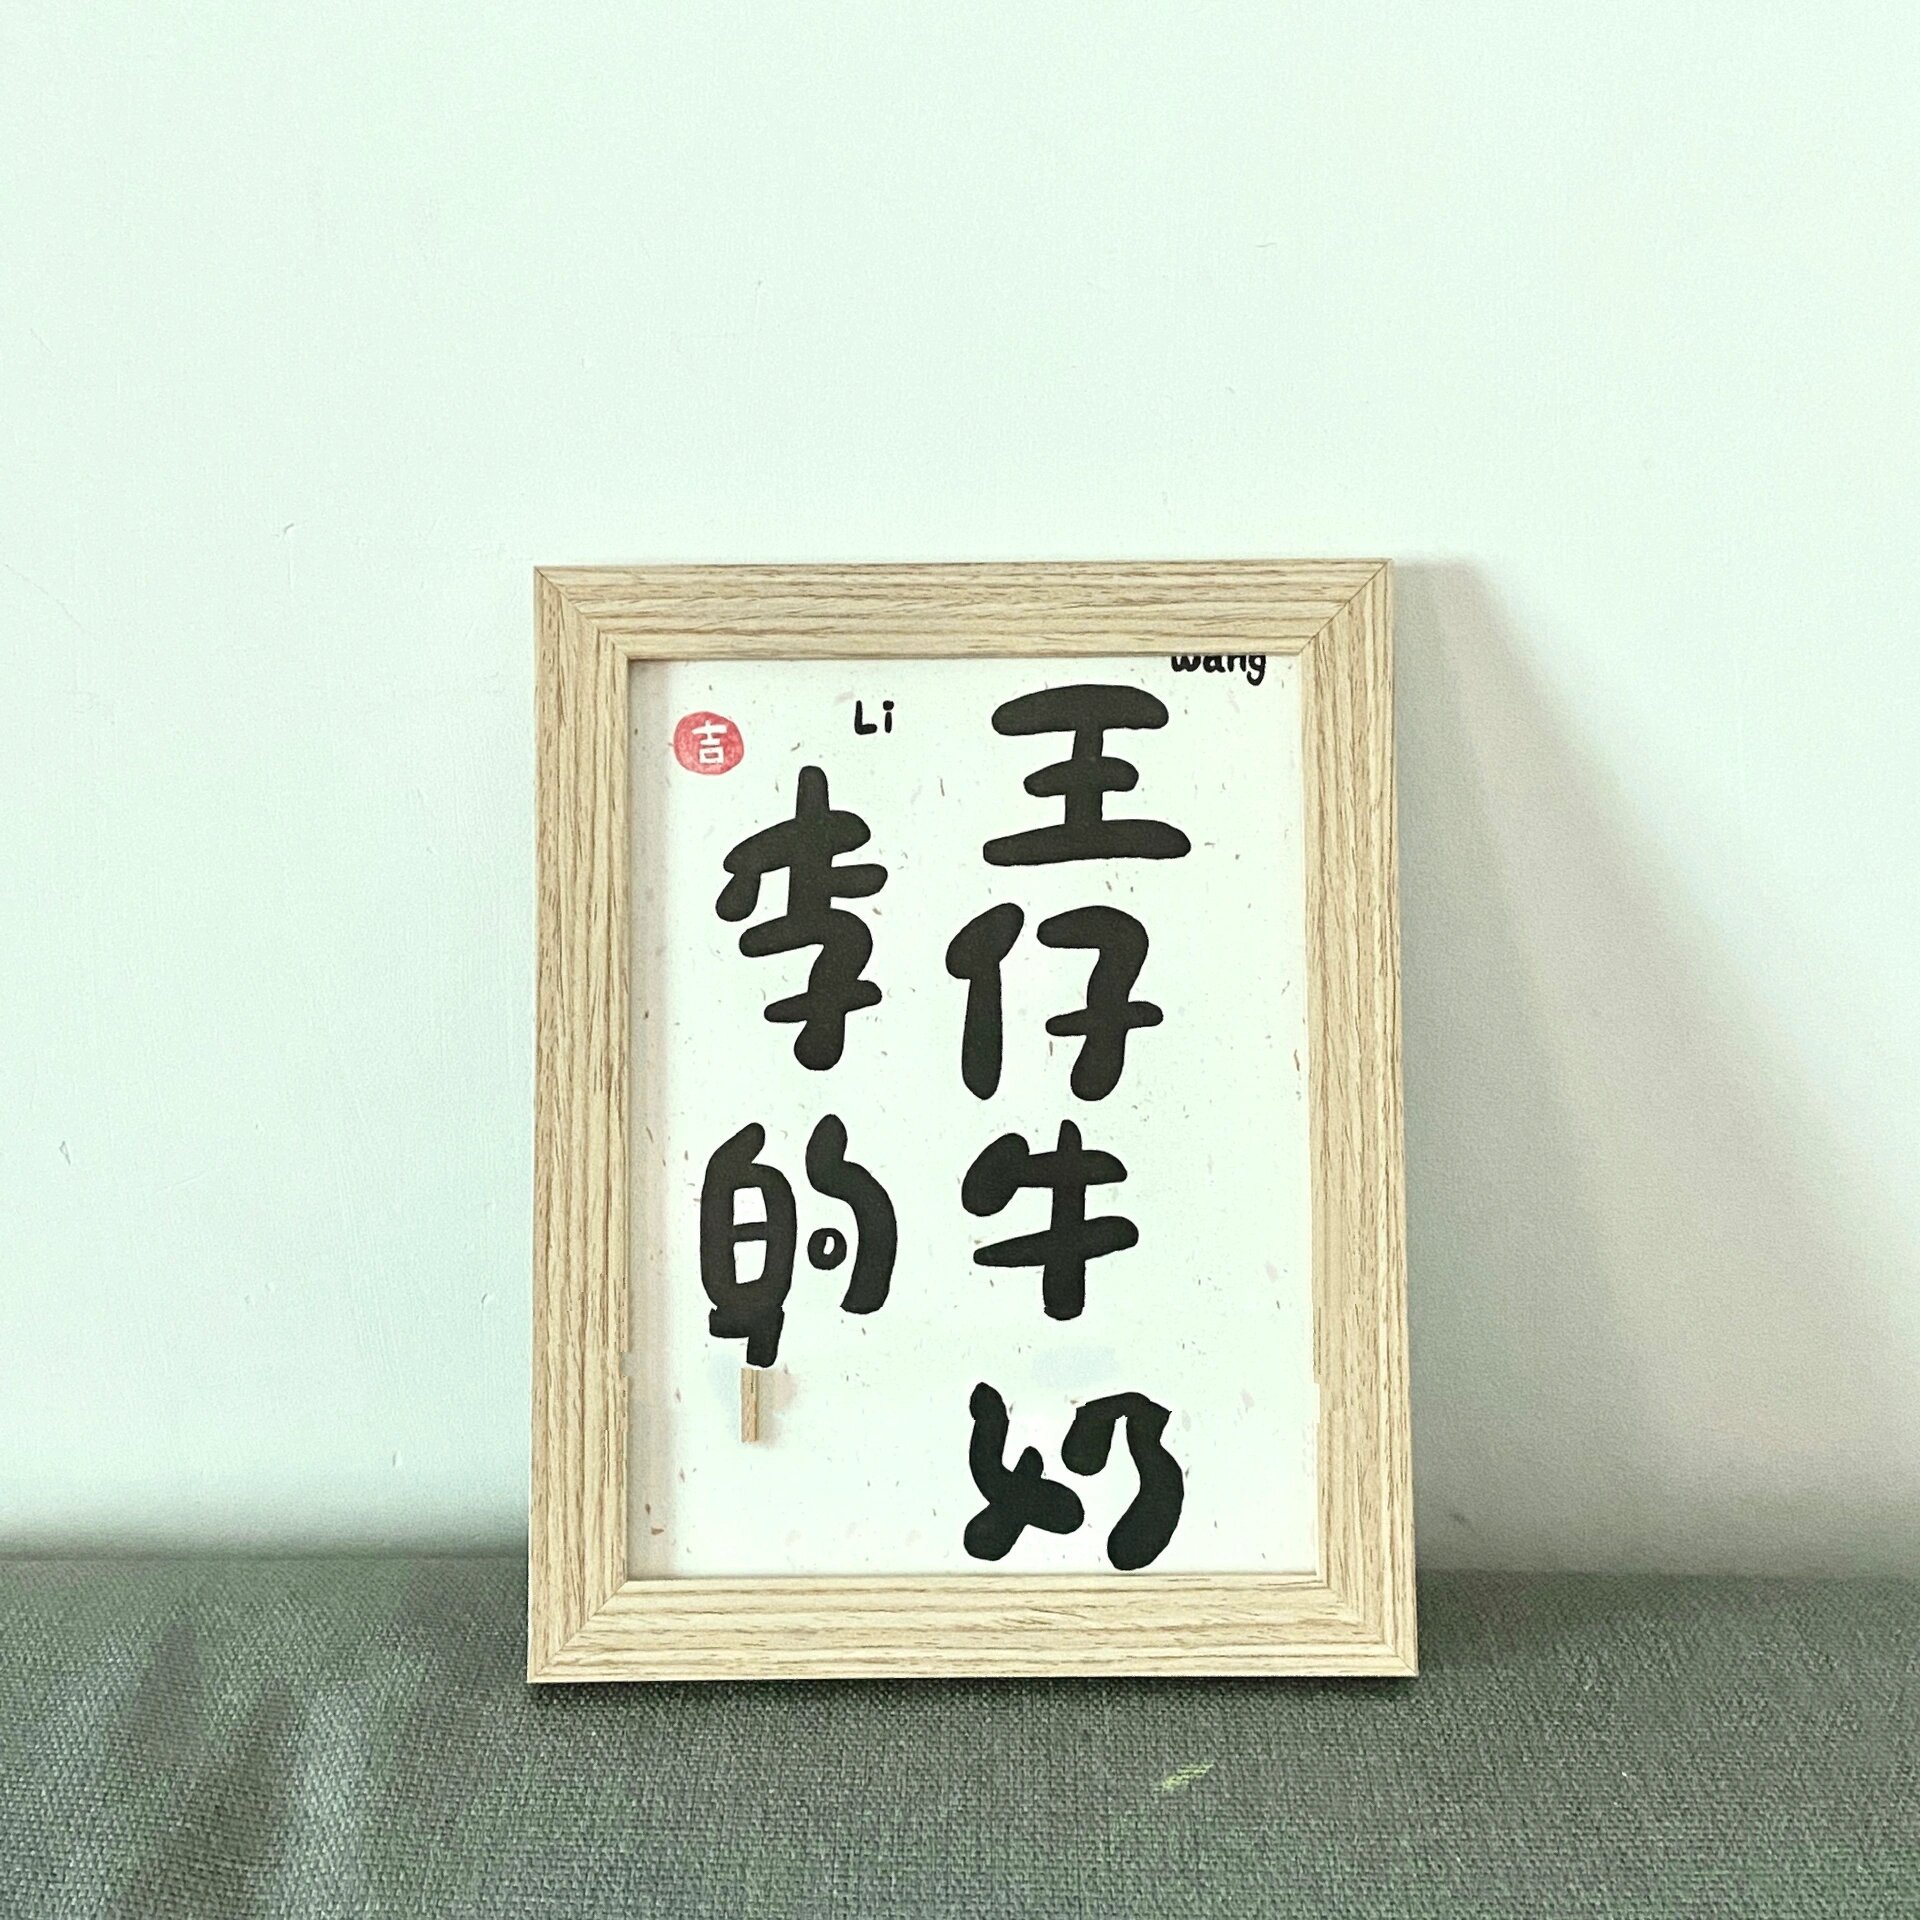 wang
王仔牛奶
Li
李的
吉